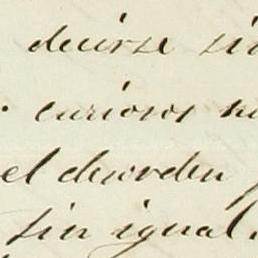 decirse si
curiosos n
el desorden
sin igual.